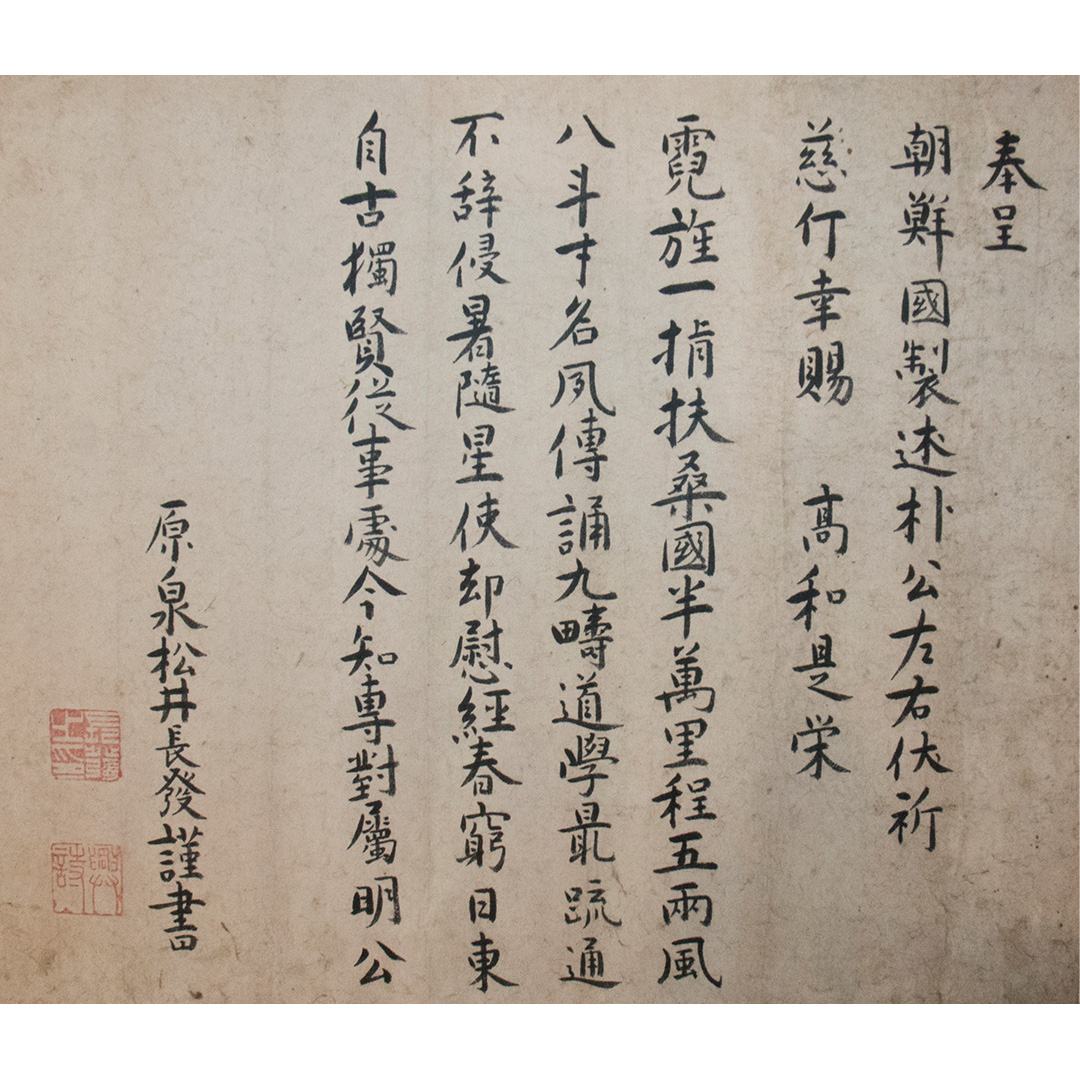 奉呈
朝鮮國製述朴公左右伏祈
慈仃幸賜 髙和是栄
霓旌一指扶桑國半萬里程五兩風
八斗才名夙傳誦九疇道學最疏通
不辞侵暑隨星使却慰經春窮日東
自古獨賢從事處今知專對屬明公
原泉松井長發謹書